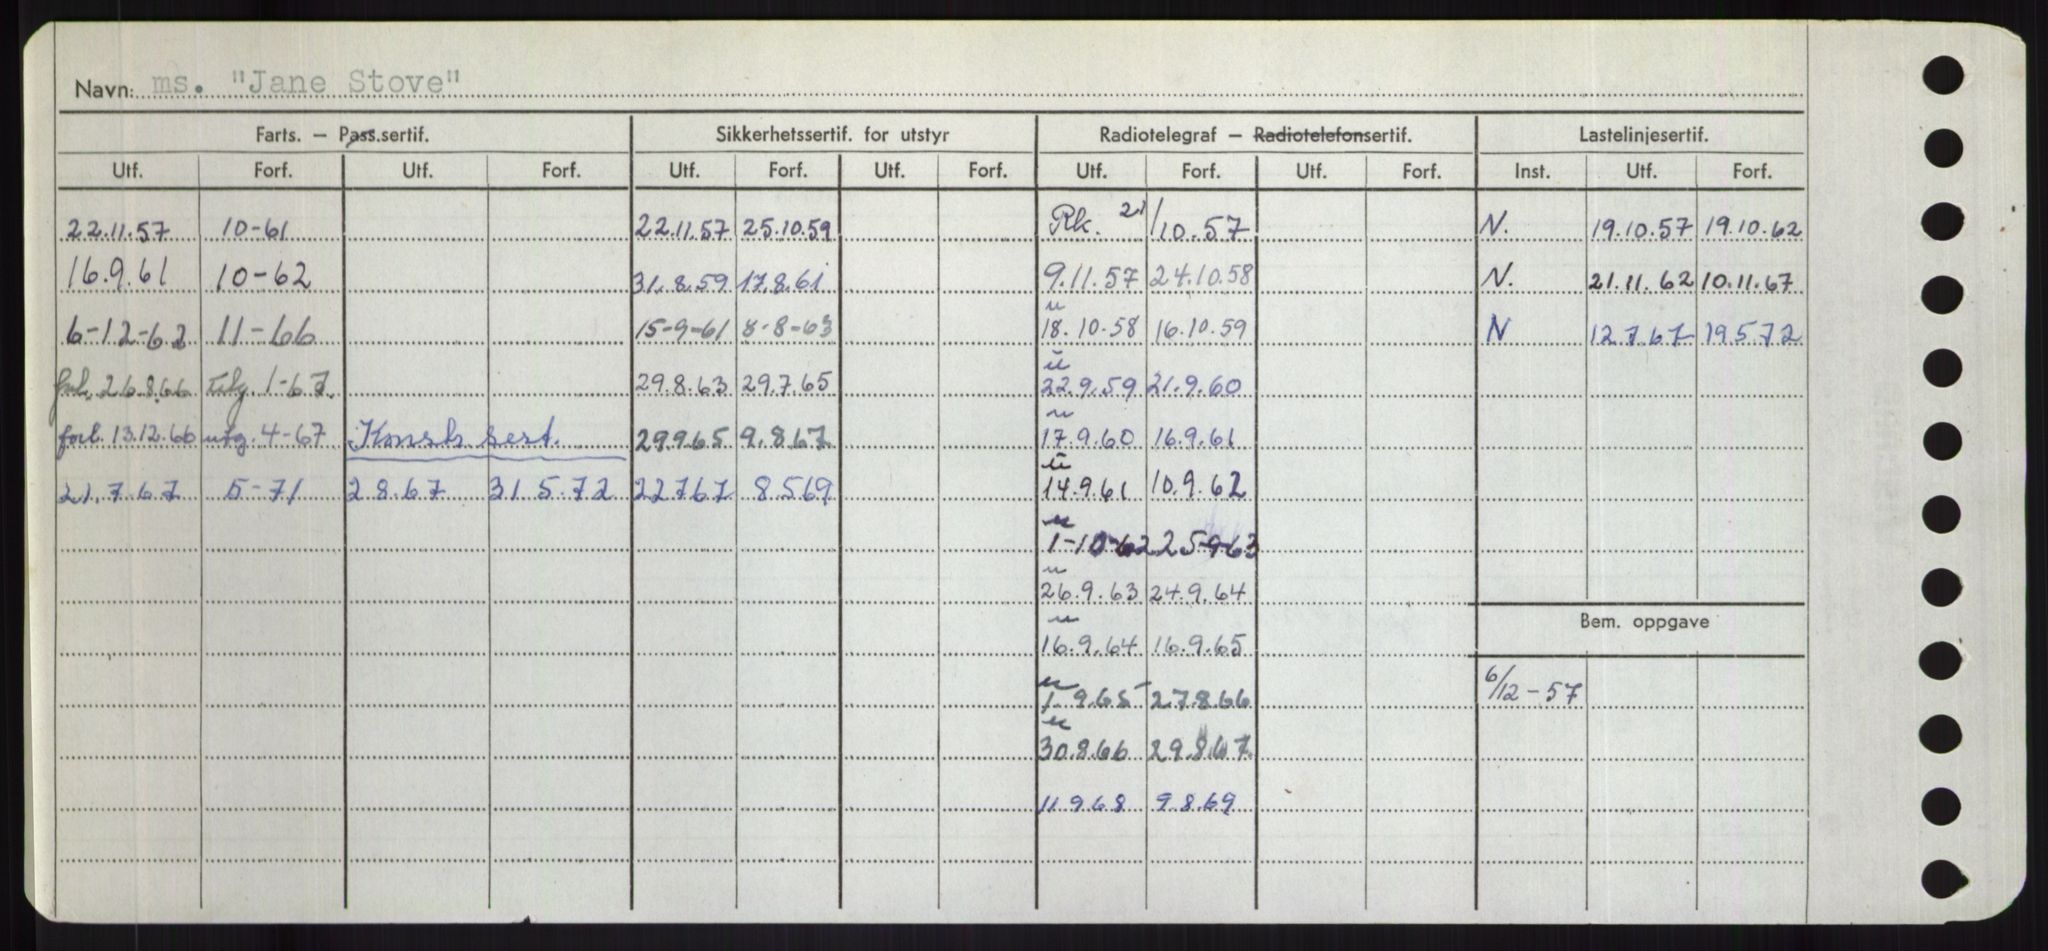 Navn: ms. "Jane Stove"
Farts. — Pass.sertif. Sikkerhetssertif. for utstyr Radiotelegraf — Radiotelefonsertif. Lastelinjesertif.
Utf. Forf. Utf. Forf. Utf. Forf. Utf. Forf. Utf. Forf. Utf. Forf. Inst. Utf. Forf.
22.11.57 10-61 22.11.57 25.10.59 Rk. 21/10.57 N. 19.10.57 19.10.62
16.9.61 10-62 31.8.59 17.8.61 9.11.57 24.10.58 N. 21.11.62 10.11.67
6-12-62 11-66 15-9-61 8-8-63 18.10.58 16.10.59 N 12.7.67 19.5.72
26.8.66 1-67. 29.8.63 29.7.65 22.9.59 21.9.60
forl. 13.12.66 utg. 4-67 Konstr. sert. 29.9.65 9.8.67 17.9.60 16.9.61
21.7.67 5-71 2.8.67 31.5.72 22.7.67 8.5.69 14.9.61 10.9.62
1-10-62 25-9-63
26.9.63 24.9.64
Bem. oppgave
16.9.64 16.9.65
6/12-57
1.9.65 27.8.66
30.8.66 29.8.67.
11.9.68 9.8.69